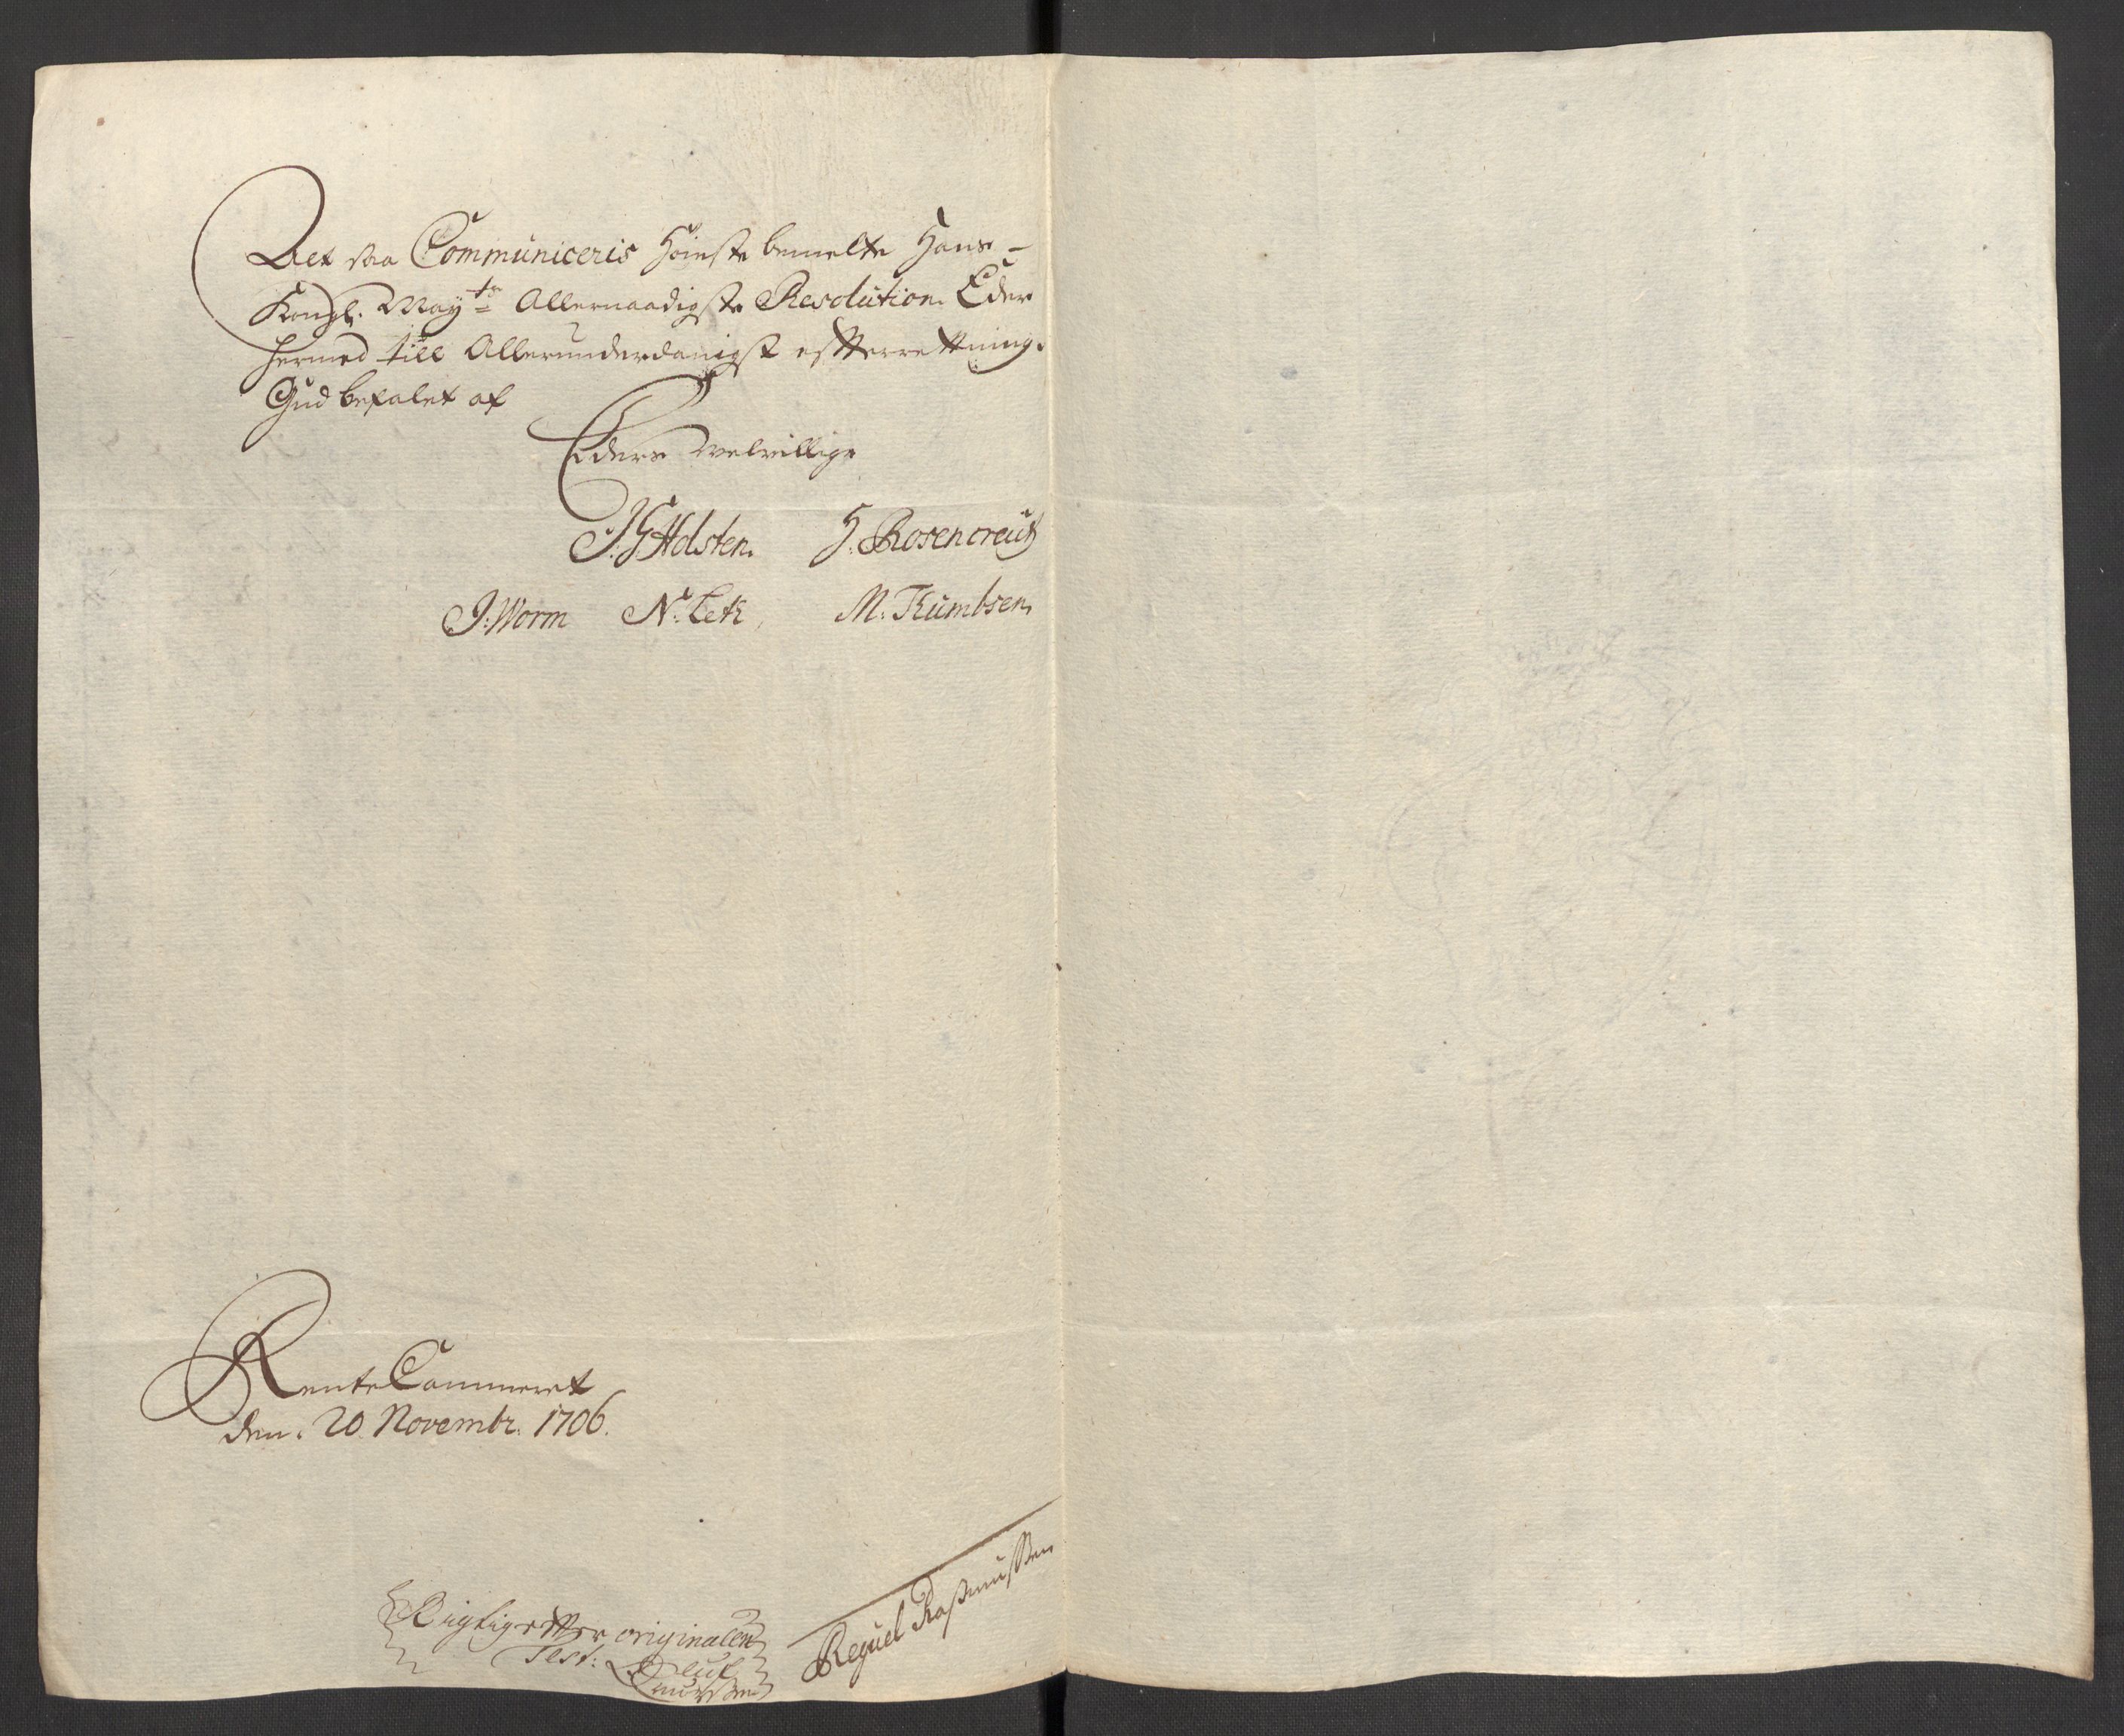 Det saa Communiceris Høieste bemelte Hans-
Kongl. May:ts Allernaadigste Resolution. Eder
hermed till Allerunderdanigst efterrettning.
Gud befalet af
Eders Velvillige
J: G Holsten. H: Rosencreutz
J: Worm N: Letk, M: Thumbsen
Rente Cammeret
den: 20 Novembr. 1706.
Rigtig effter originalen
Test: Oluf
Reguel Rasmussen